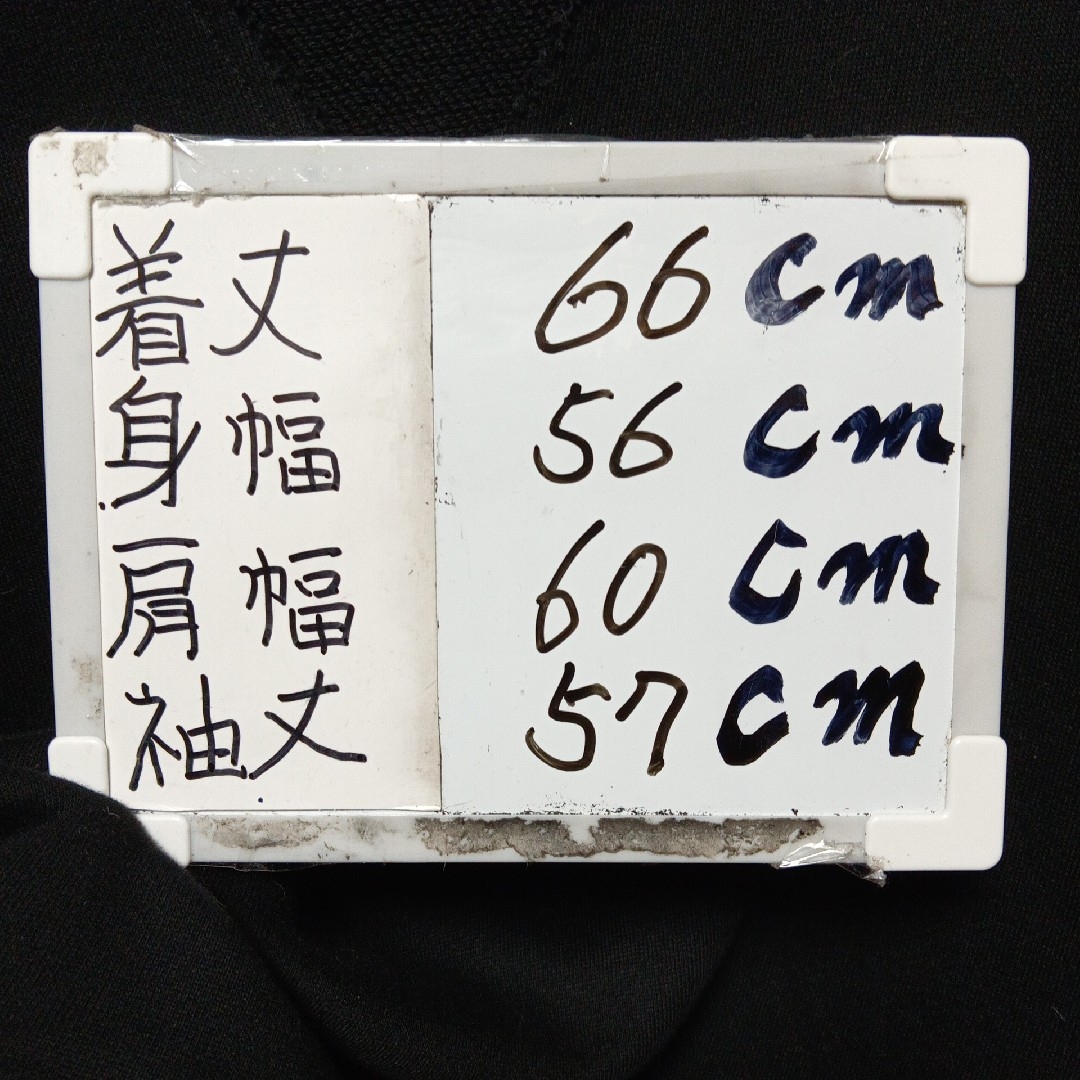 着丈 66cm
身幅 56cm
肩幅 60cm
袖丈 57cm